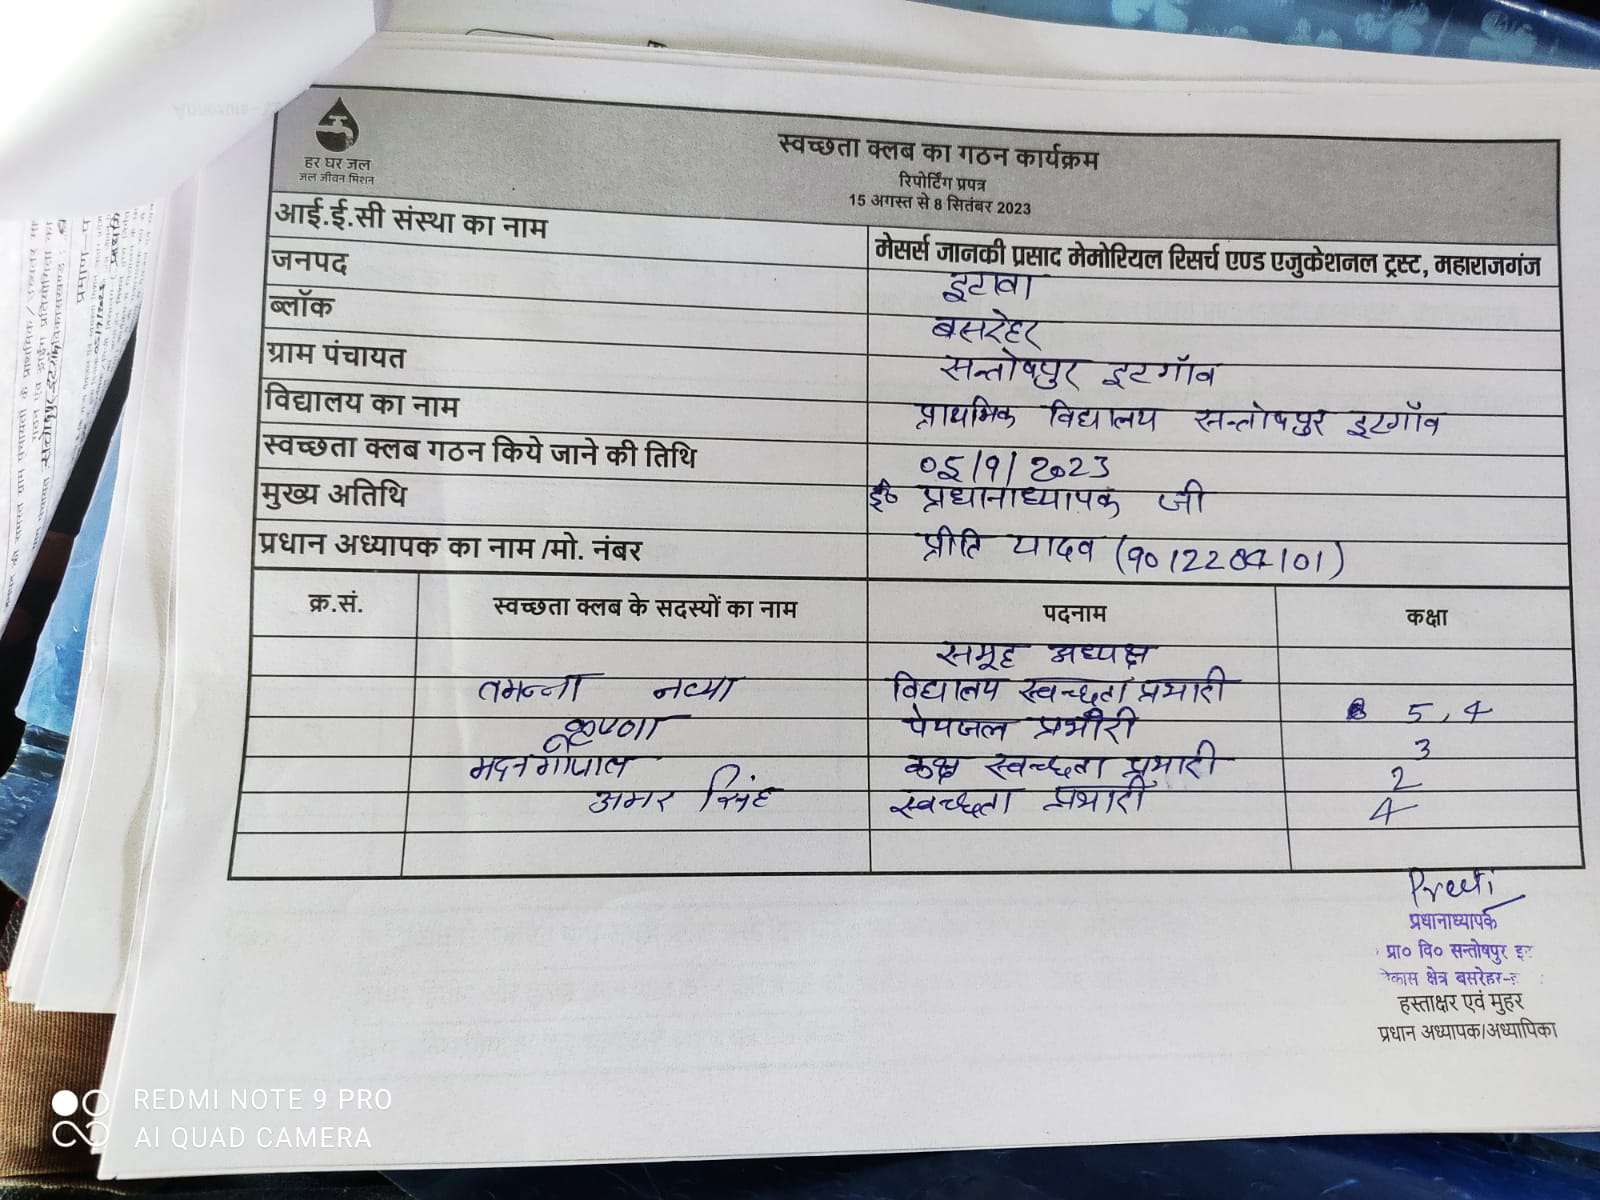 हर घर जल
जल जीवन मिशन
स्वच्छता क्लब का गठन कार्यक्रम
रिपोर्टिंग प्रपत्र
15 अगस्त से 8 सितंबर 2023
आई.ई.सी संस्था का नाम मेसर्स जानकी प्रसाद मेमोरियल रिसर्च एण्ड एजुकेशनल ट्रस्ट, महाराजगंज
जनपद इटावा
ब्लॉक बसरेहर
ग्राम पंचायत सन्तोषपुर इटगॉव
विद्यालय का नाम प्राथमिक विद्यालय सन्तोषपुर इटगॉव
स्वच्छता क्लब गठन किये जाने की तिथि 05/9/2023
मुख्य अतिथि इ० प्रधानाध्यापक जी
प्रधान अध्यापक का नाम /मो. नंबर प्रीति यादव (9012204101)
क्र.सं. स्वच्छता क्लब के सदस्यों का नाम पदनाम कक्षा
समूह अध्यक्ष
तमन्ना नव्या विद्यालय स्वच्छता प्रभारी 5, 4
कृष्णा पेयजल प्रभारी 3
मदनगोपाल कक्ष स्वच्छता प्रभारी 2
अमर सिंह स्वच्छता प्रभारी 4
Preeti
प्रधानाध्यापक
प्रा० वि० सन्तोषपुर
क्षेत्र बसरेहर
हस्ताक्षर एवं मुहर
प्रधान अध्यापक/अध्यापिका
REDMI NOTE 9 PRO
AI QUAD CAMERA